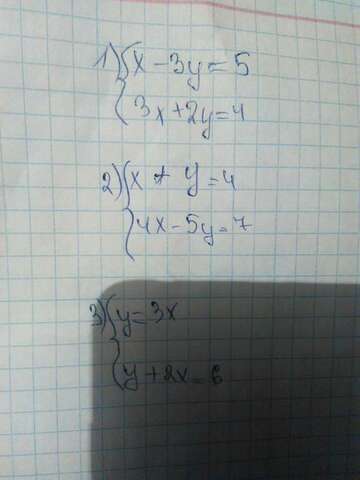 1) { x - 3y = 5
3x + 2y = 4
2) { x + y = 4
4x - 5y = 7
3) { y = 3x
y + 2x = 6